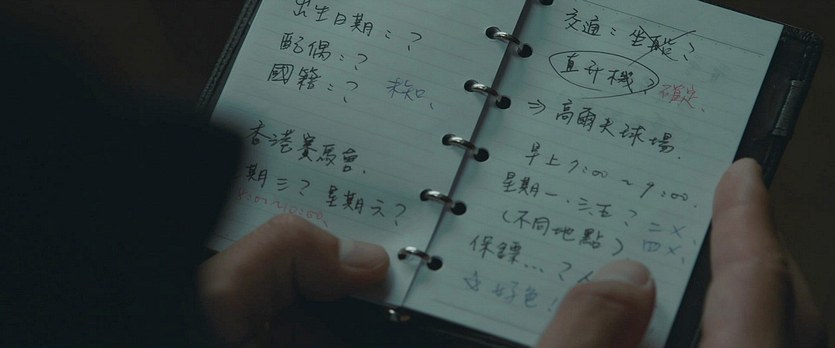 出生日期：？
配偶：？
國籍：？ 未知、
香港賽馬會．
期三？ 星期六？
交通：坐艇？
直升機？ 確定、
⇒ 高爾夫球場．
早上 7:00 ~ 9:00．
星期一、三、五？ 二 x、
（不同地點） 四 x、
保鏢...？
好色！